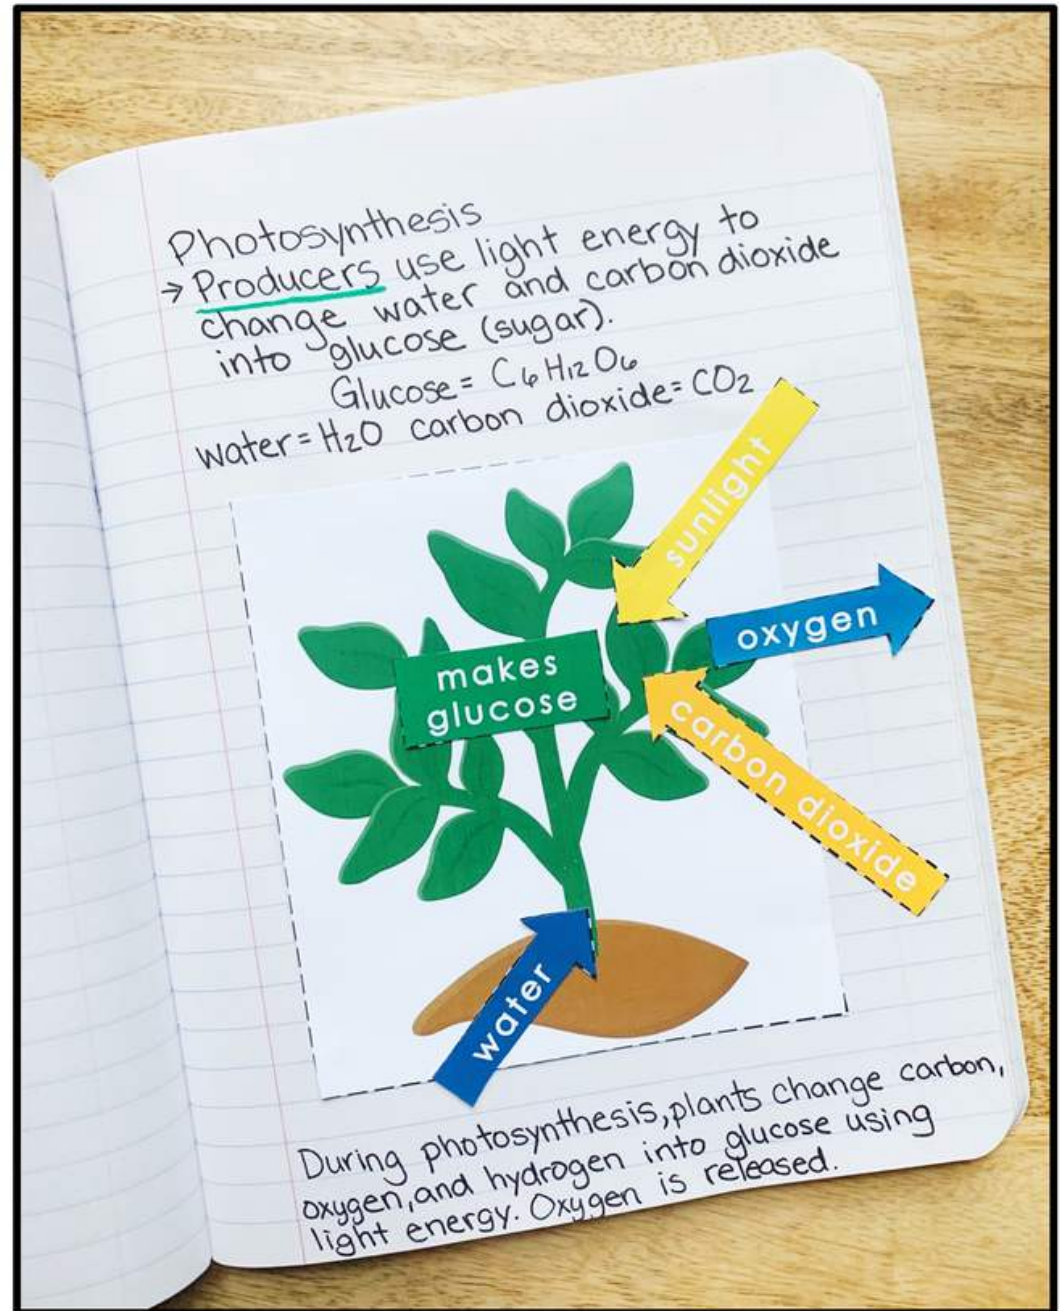 Photosynthesis
→ Producers use light energy to
change water and carbon dioxide
into glucose (sugar).
Glucose = C₆H₁₂O₆
water = H₂O carbon dioxide = CO₂
sunlight
oxygen
makes
glucose
carbon dioxide
water
During photosynthesis, plants change carbon,
oxygen, and hydrogen into glucose using
light energy. Oxygen is released.